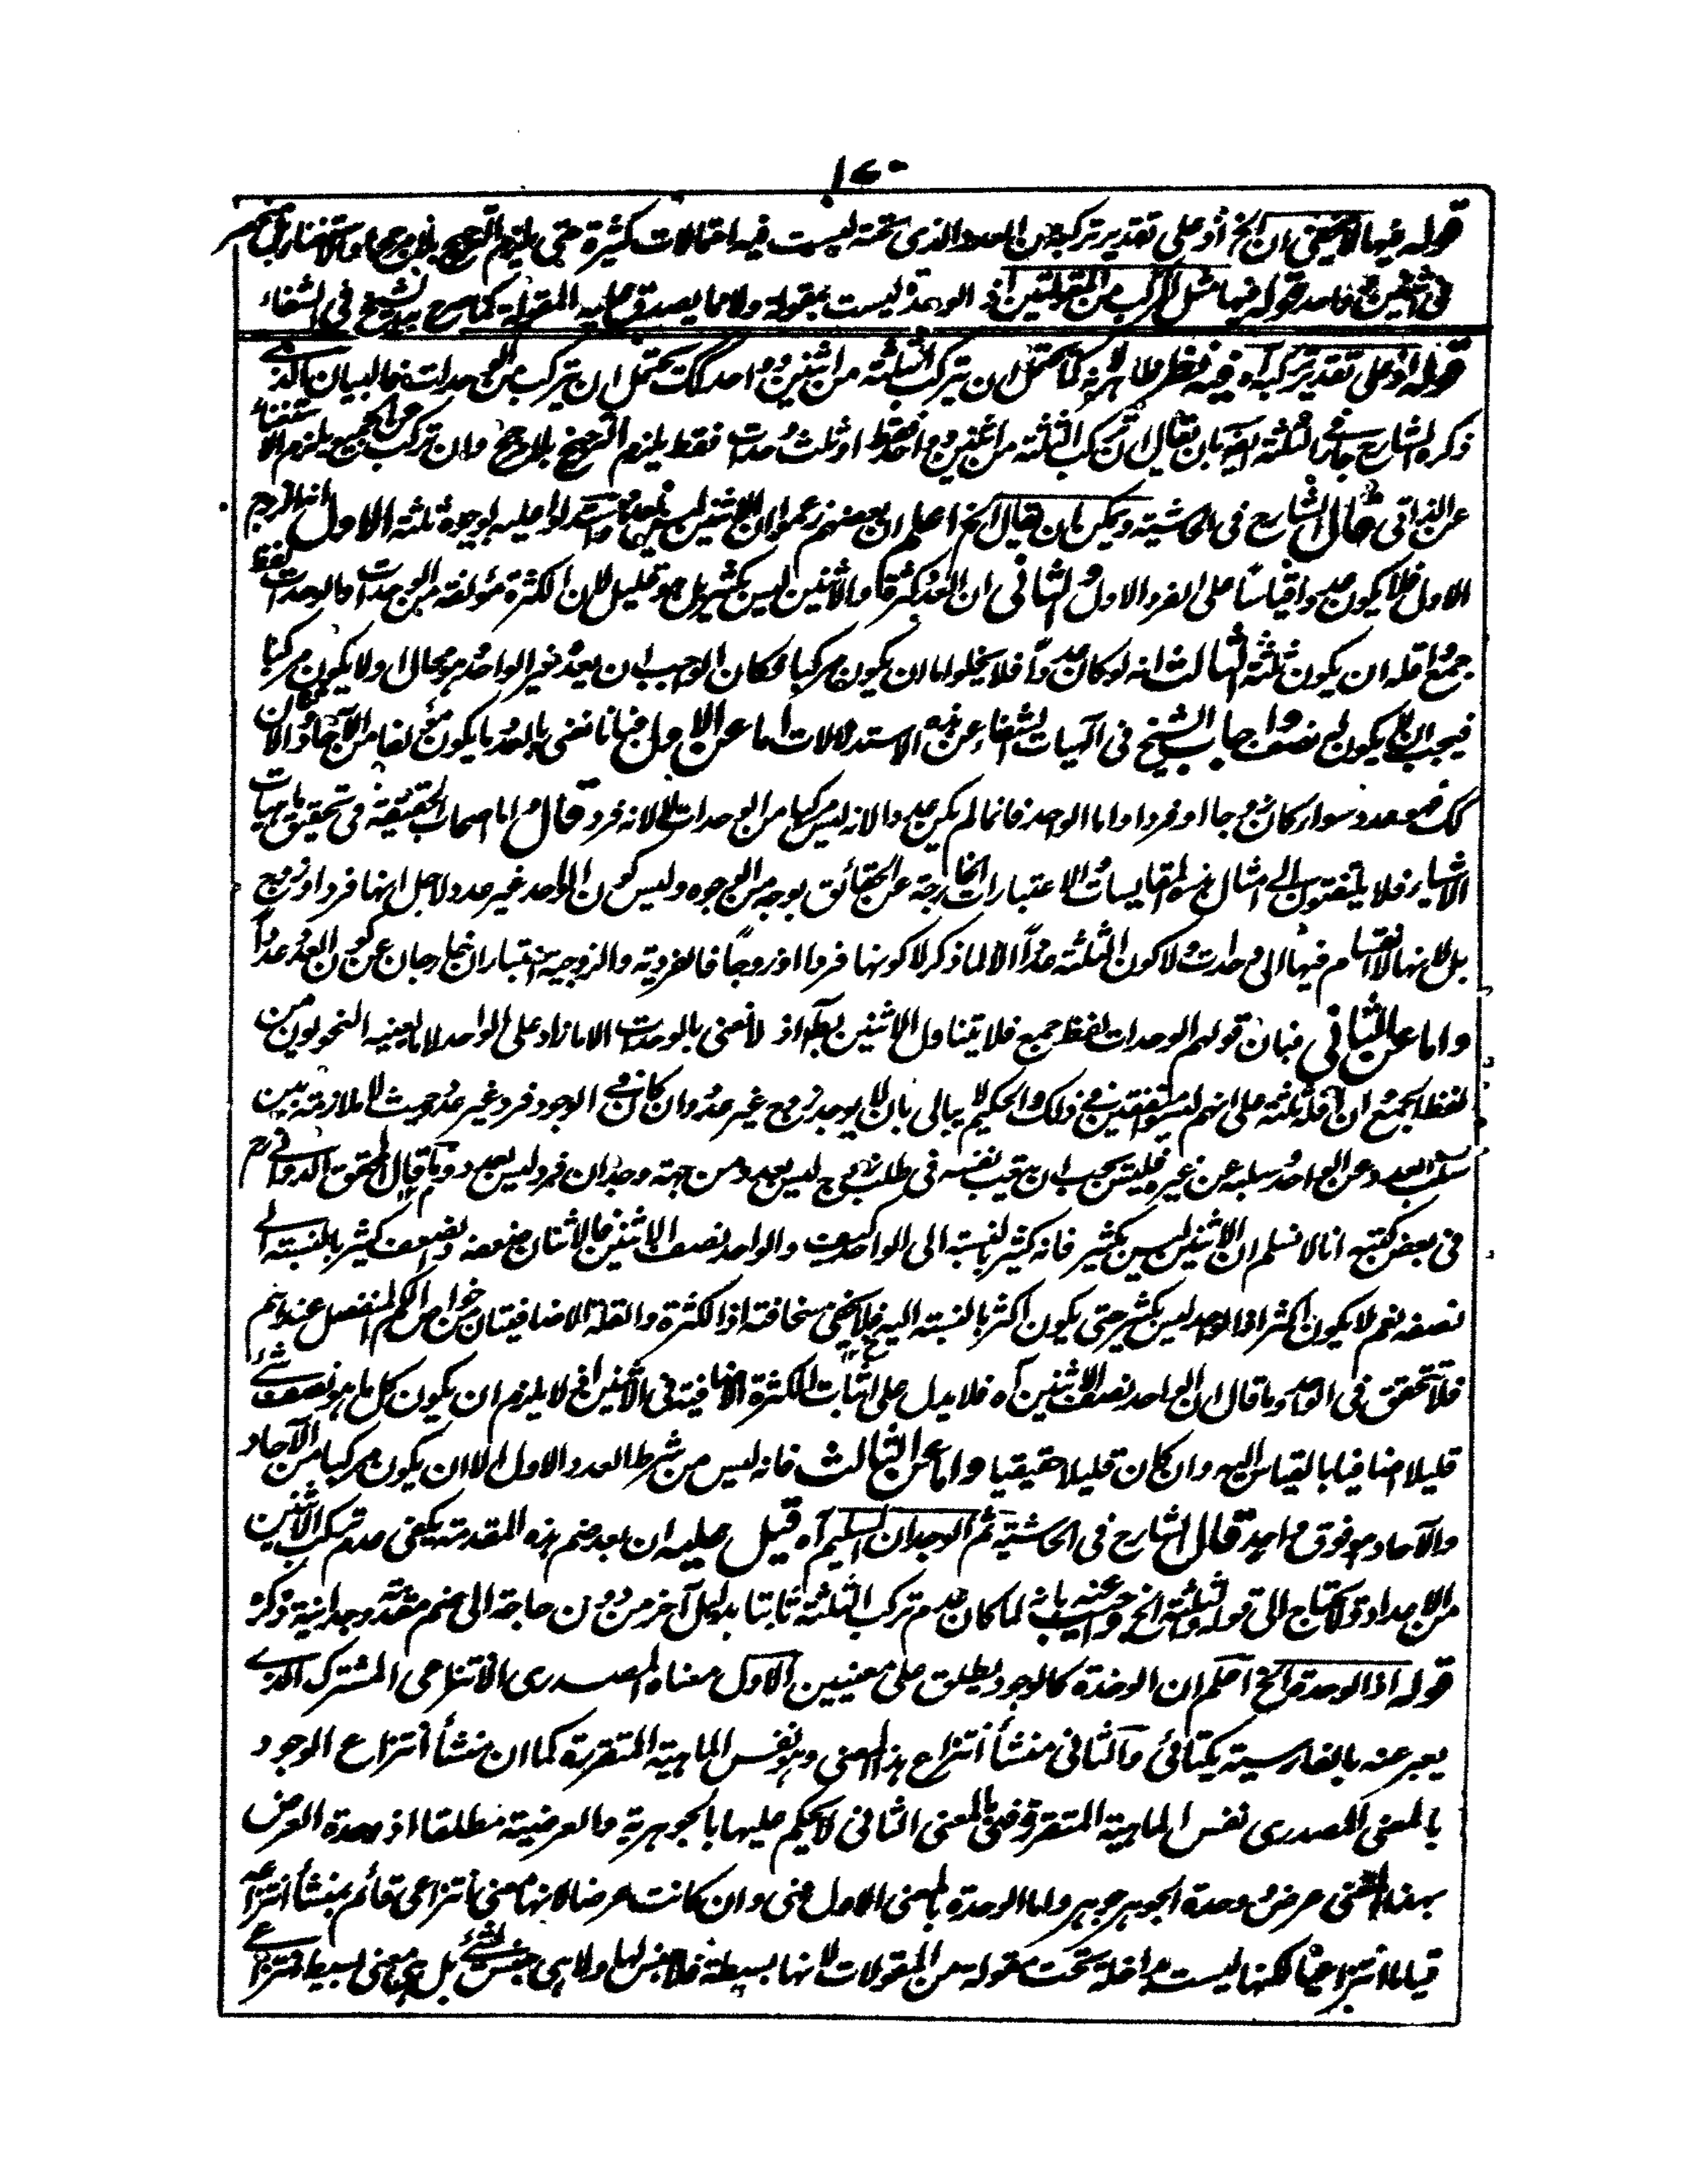 ١٧٠
قوله فيها لا يخفى ان الخ اذ على تقدير تركبه من العدد الذى تحته ليست فيه احتمالات كثيرة حتى يلزم الترجيح بلا مرجح او الاستغناء بل
فى اثنين واحد قوله فيها مثل المركب من المقولتين اذ الوحدة ليست بمقولة ولا مما يصدق عليه المقولة كما صرح به الشيخ فى الشفاء
قوله اذ على تقدير تركبه اه فيه نظر ظاهر لانه كما يحتمل ان يتركب الثلثة من اثنين وواحد كك يحتمل ان يتركب من الوحدات فالبيان الذے
ذكره الشارح جار فے الثلثة ايضا بان يقال ان تركب الثلثة من اثنين وواحد فقط او ثلث وحدات فقط يلزم الترجيح بلا مرجح وان تركب من الجميع يلزم الاستغناء
عن الذاتى قال الشارح فى الحاشية ويمكن ان يقال الخ اعلم ان بعضهم زعموا ان الاثنين ليس بعدد واستدلوا عليه بوجوه ثلثة الاول انه الزوج
الاول فلا يكون عددا قياسا على الفرد الاول والثانى ان العدد كثرة والاثنين ليس بكثير بل هو قليل لان الكثرة مؤلفة من الوحدات والوحدات لفظ
جمع واقله ان يكون ثلثة والثالث انه لو كان عددا فلا يخلو اما ان يكون مركبا فكان الواجب ان يعده غير الواحد وهو محال او لا يكون مركبا
فيجب ان لا يكون له نصف واجاب الشيخ فى الهيات الشفاء عن هذه الاستدلالات اما عن الاول فبانا نعنى بالعدد ما يكون مؤلفا من الآحاد والاثنان
كك فهو عدد سواء كان زوجا او فردا واما الواحد فانما لم يكن عددا لانه ليس مركبا من الوحدات لا لانه فرد قال واما اصحاب الحقيقة فى تحقيق ماهيات
الاشياء فلا يلتفتون الى امثال هذه المقايسات والاعتبارات الخارجة عن الحقائق بوجه من الوجوه وليس كون الواحد غير عدد لاجل انها فرد او زوج
بل لانها لا انقسام فيها الى وحدات ولا كون الثلثة عددا الا لما ذكر لا كونها فردا او زوجا فالفردية والزوجية اعتباران خارجان عن كون العدد عددا
واما عن الثانى فبان قولهم الوحدات لفظ جمع فلا يتناول الاثنين بط اذ لا نعنى بالوحدات الا ما زاد على الواحد لا ما يعنيه النحويون من
لفظ الجمع ان اقله ثلثة على انهم ليسوا متفقين فے ذلك والحكيم لا يبالى بان لا يوجد زوج غير عدد وان كان فے الوجود فرد غير عدد حيث لا ملازمة بين
سلب العدد عن الواحد وسلبه عن غيره فليس يجب ان يتعب نفسه فى طلب زوج ليس بعدد من جهة وجدان فرد ليس بعدد وما قال المحقق الدوانے
فى بعض كتبه انا لا نسلم ان الاثنين ليس بكثير فانه كثير بالنسبة الى الواحد كيف والواحد نصف الاثنين فالاثنان ضعفه والضعف كثير بالنسبة الے
نصفه نعم لا يكون اكثر اذ الواحد ليس بكثير حتى يكون اكثر بالنسبة اليه فلا يخفى سخافته اذ الكثرة والقلة الاضافيتان من خواص الكم المنفصل عندهم
فلا تحقق فى الواحد وما قال ان الواحد نصف الاثنين اه فلا يدل على اثبات الكثرة الاضافية فى الاثنين اذ لا يلزم ان يكون كل ما هو نصف شئ
قليلا اضافيا بالقياس اليه وان كان قليلا حقيقيا واما عن الثالث فانه ليس من شرط العدد الاول الا ان يكون مركبا من الآحاد
والآحاد هو فوق واحد قال الشارح فى الحاشية ثم الوجدان السليم اه قيل عليه ان بعد ضم هذه المقدمة يكفى عدم تركب الاثنين
من الاعداد ولا يحتاج الى قوله والثلثة الخ واجيب عنه بانه لما كان عدم تركب الثلثة ثابتا بدليل آخر من دون حاجة الى ضم مقدمة وجدانية ذكره
قوله اذ الوحدة الخ اعلم ان الوحدة كالوجود يطلق على معنيين الاول معناه المصدرى الانتزاعى المشترك الذے
يعبر عنه بالفارسية يكتائى والثانى منشأ انتزاع هذا المعنى وهو نفس الماهية المتقررة كما ان منشأ انتزاع الوجود
بالمعنى المصدرى نفس الماهية المتقررة فهى بالمعنى الثانى لا يحكم عليها بالجوهرية والعرضية مطلقا اذ وحدة العرض
بهذا المعنى عرض ووحدة الجوهر جوهر واما الوحدة بالمعنى الاول فهى وان كانت عرضا لانها معنى انتزاعى قائم بمنشأ انتزاعه
قياما انتزاعيا لكنها ليست داخلة تحت مقولة من المقولات لانها بسيطة فلا جنس لها ولا هى جنس لشئ بل هى معنى بسيط انتزاعے